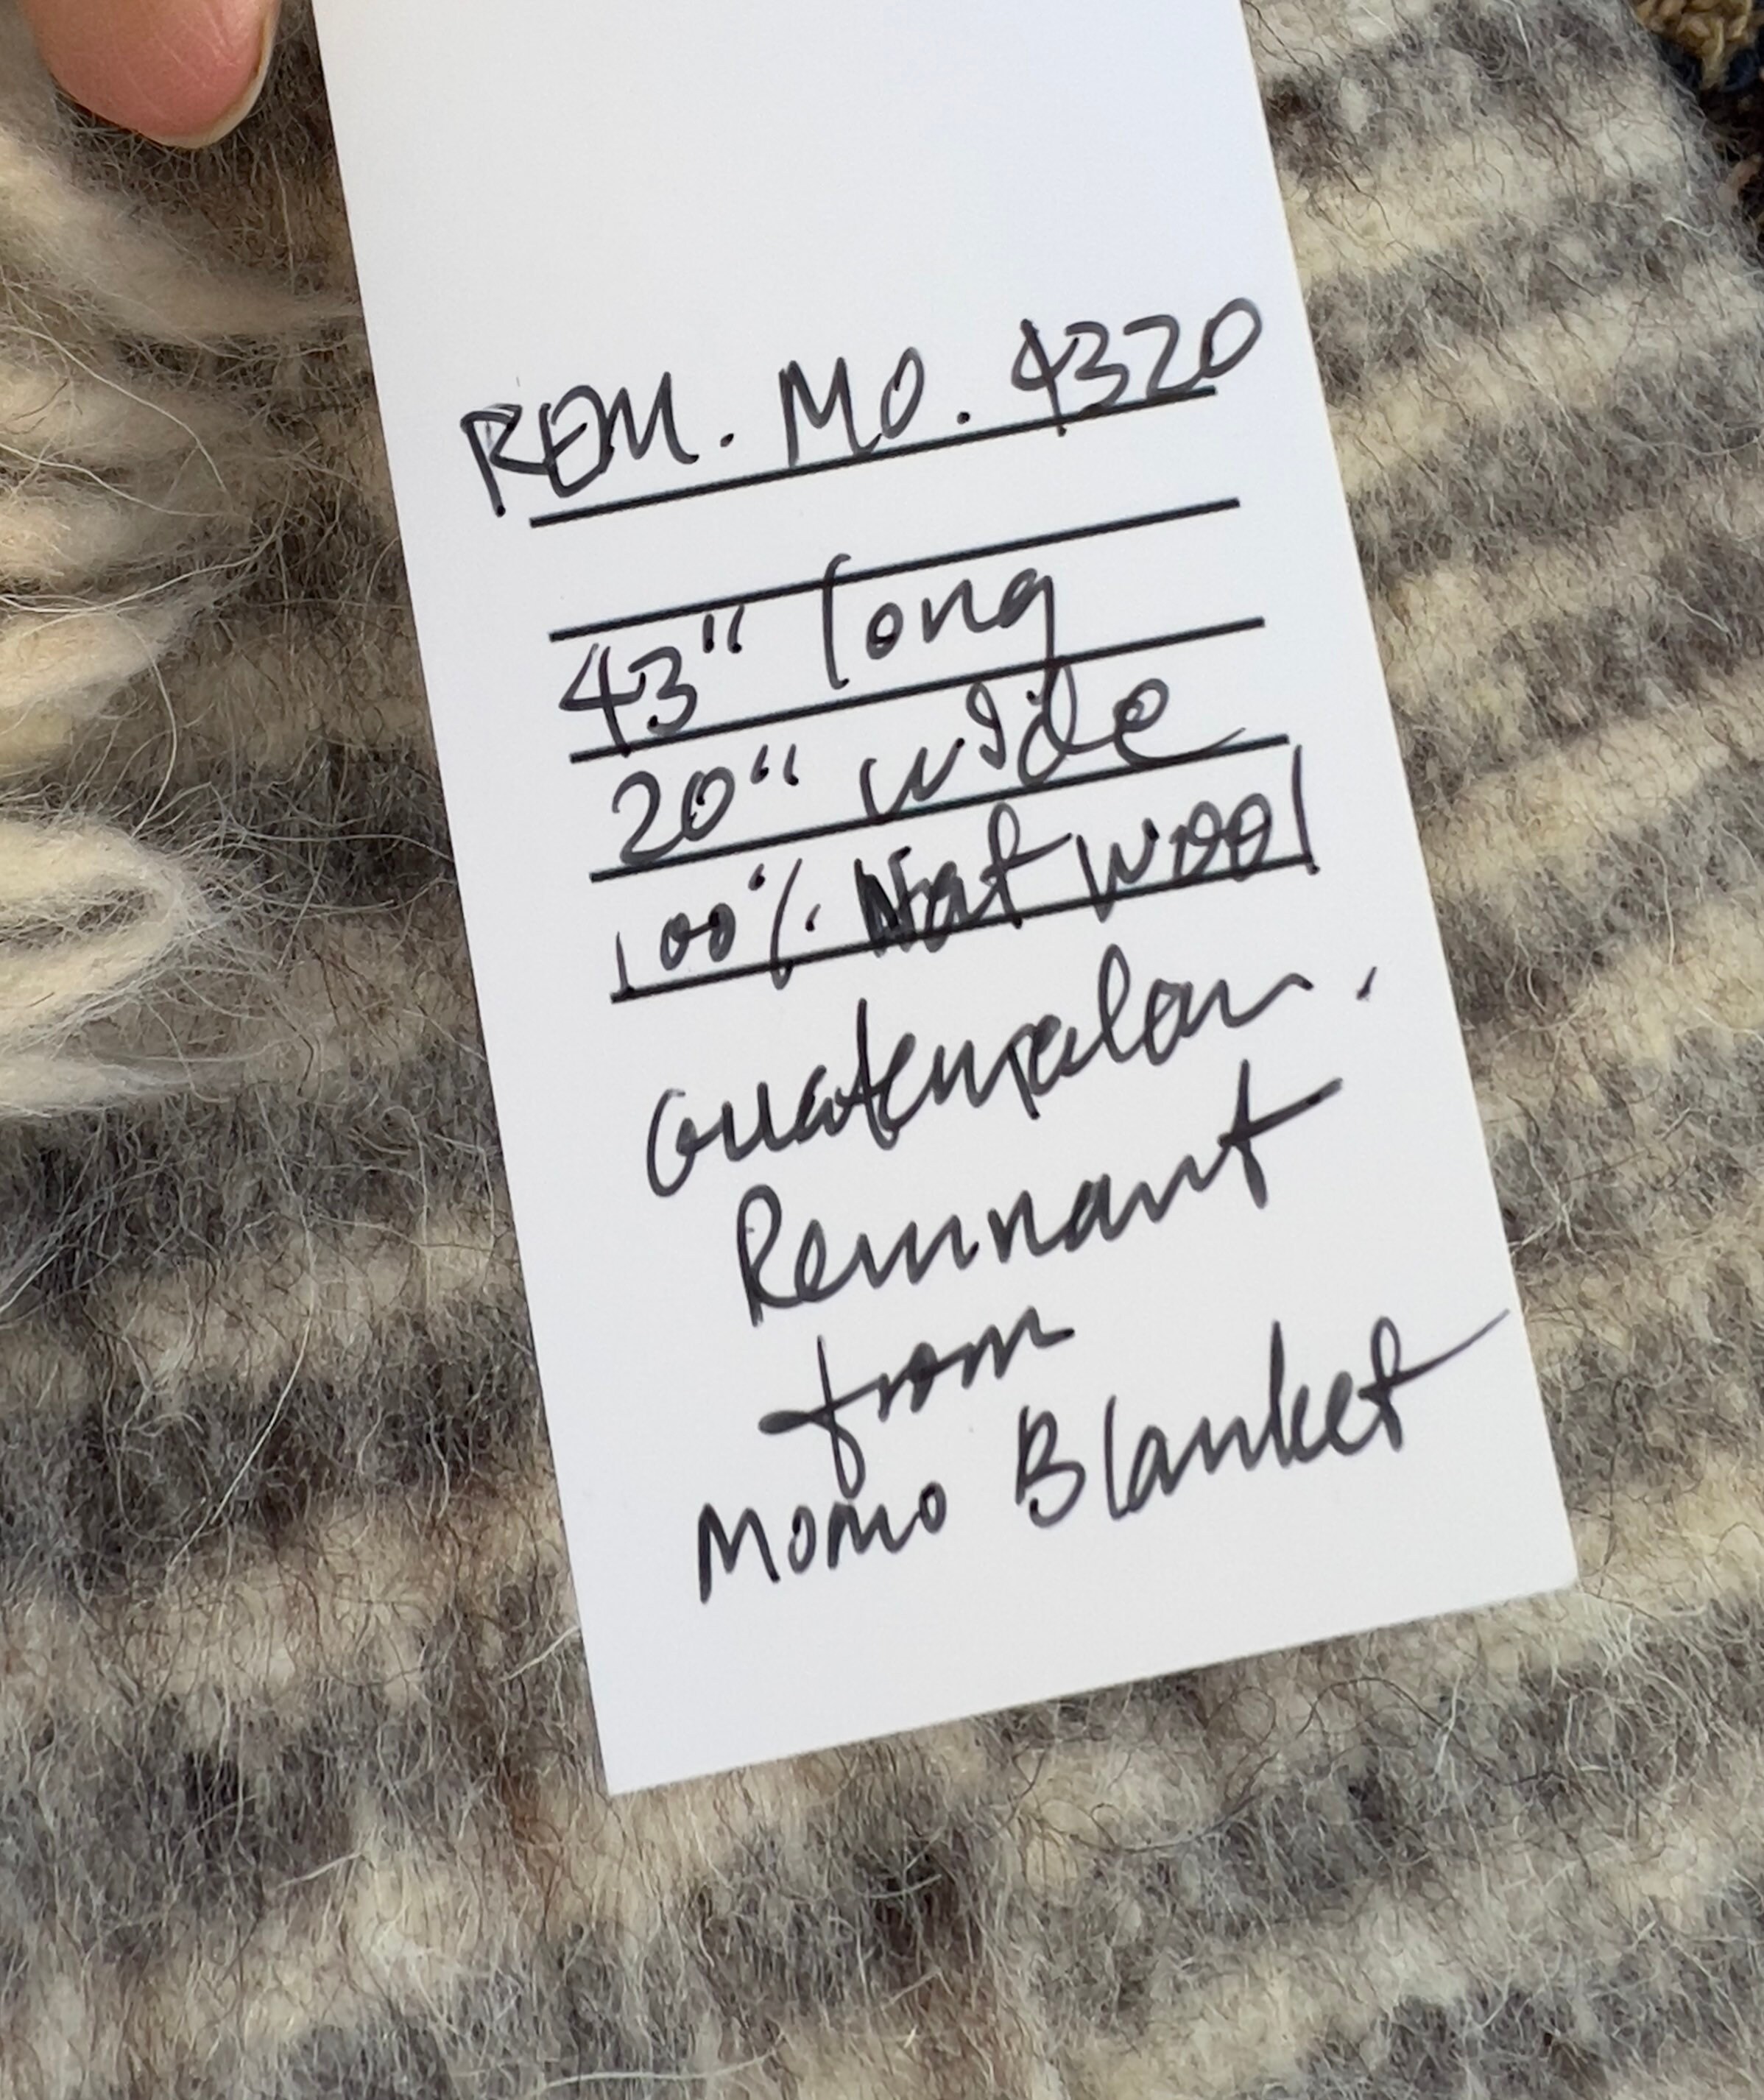 REM. MO. 4320
43" long
20" wide
100% Nat wool
Guatemalan.
Remnant
from
Momo Blanket